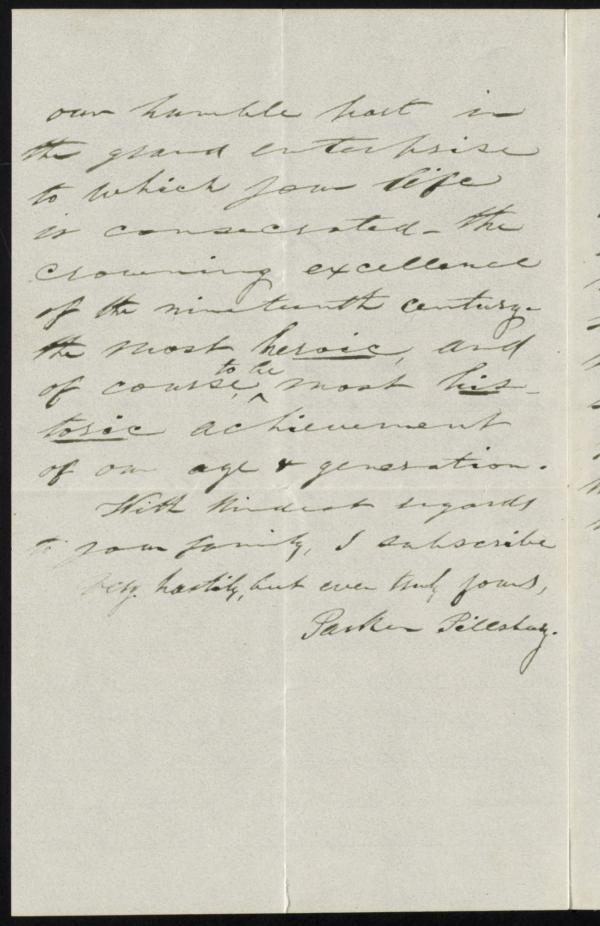 our humble part in
the grand enterprise
to which your life
is consecrated - the
crowning excellence
of the nineteenth century.
the most heroic, and
of course, to be most his-
toric achievement
of our age & generation.
With kindest regards
to your family, I subscribe
Very hastily, but ever truly yours,
Parker Pillsbury.